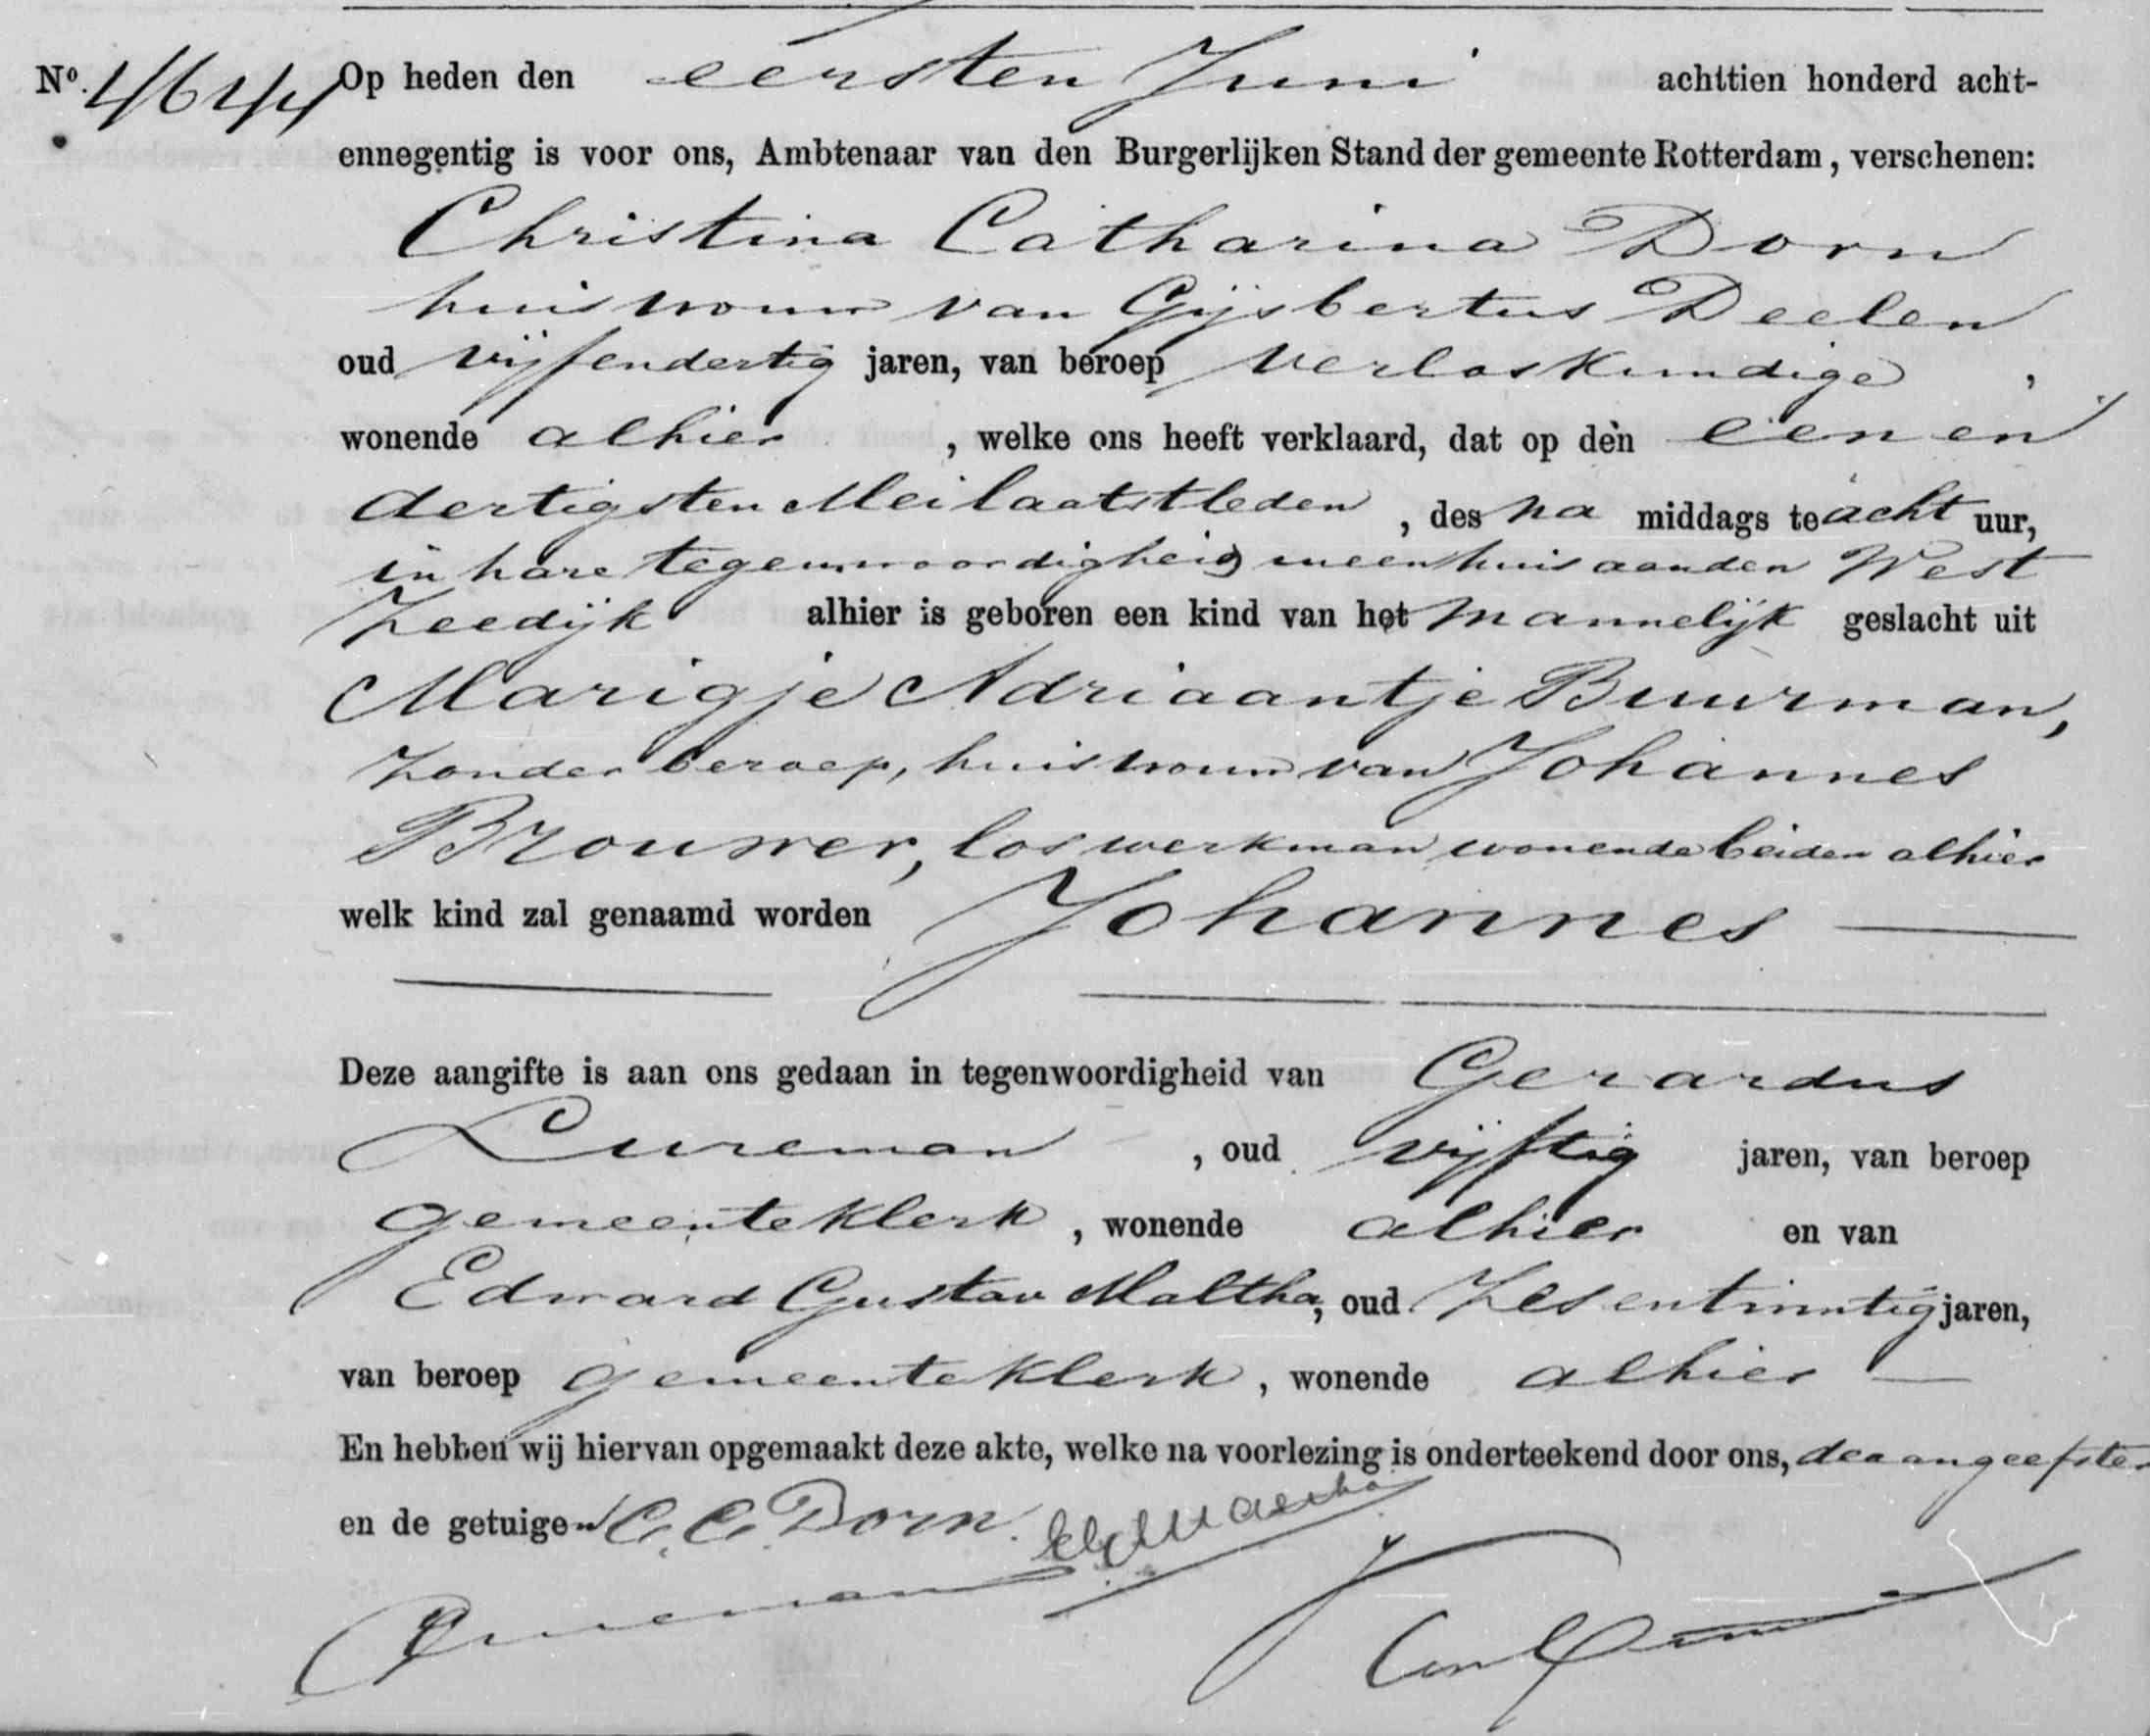 No. 4644 Op heden den eersten Juni achttien honderd acht-
ennegentig is voor ons, Ambtenaar van den Burgerlijken Stand der gemeente Rotterdam, verschenen:
Christina Catharina Dorn
huisvrouw van Gijsbertus Deelen
oud vijfendertig jaren, van beroep verloskundige,
wonende alhier, welke ons heeft verklaard, dat op den een en
dertigsten Mei laatstleden, des na middags te acht uur,
in hare tegenwoordigheid in een huis aan den West
Zeedijk alhier is geboren een kind van het mannelijk geslacht uit
Marigje Adriaantje Buurman,
zonder beroep, huisvrouw van Johannes
Brouwer, los werkman wonende beiden alhier
welk kind zal genaamd worden Johannes
Deze aangifte is aan ons gedaan in tegenwoordigheid van Gerardus
Lureman, oud vijftig jaren, van beroep
gemeenteklerk, wonende alhier en van
Edward Gustav Maltha, oud zesentwintig jaren,
van beroep gemeenteklerk, wonende alhier
En hebben wij hiervan opgemaakt deze akte, welke na voorlezing is onderteekend door ons, de aangeefster
en de getuigen C. C. Dorn. EGMaltha
Lureman